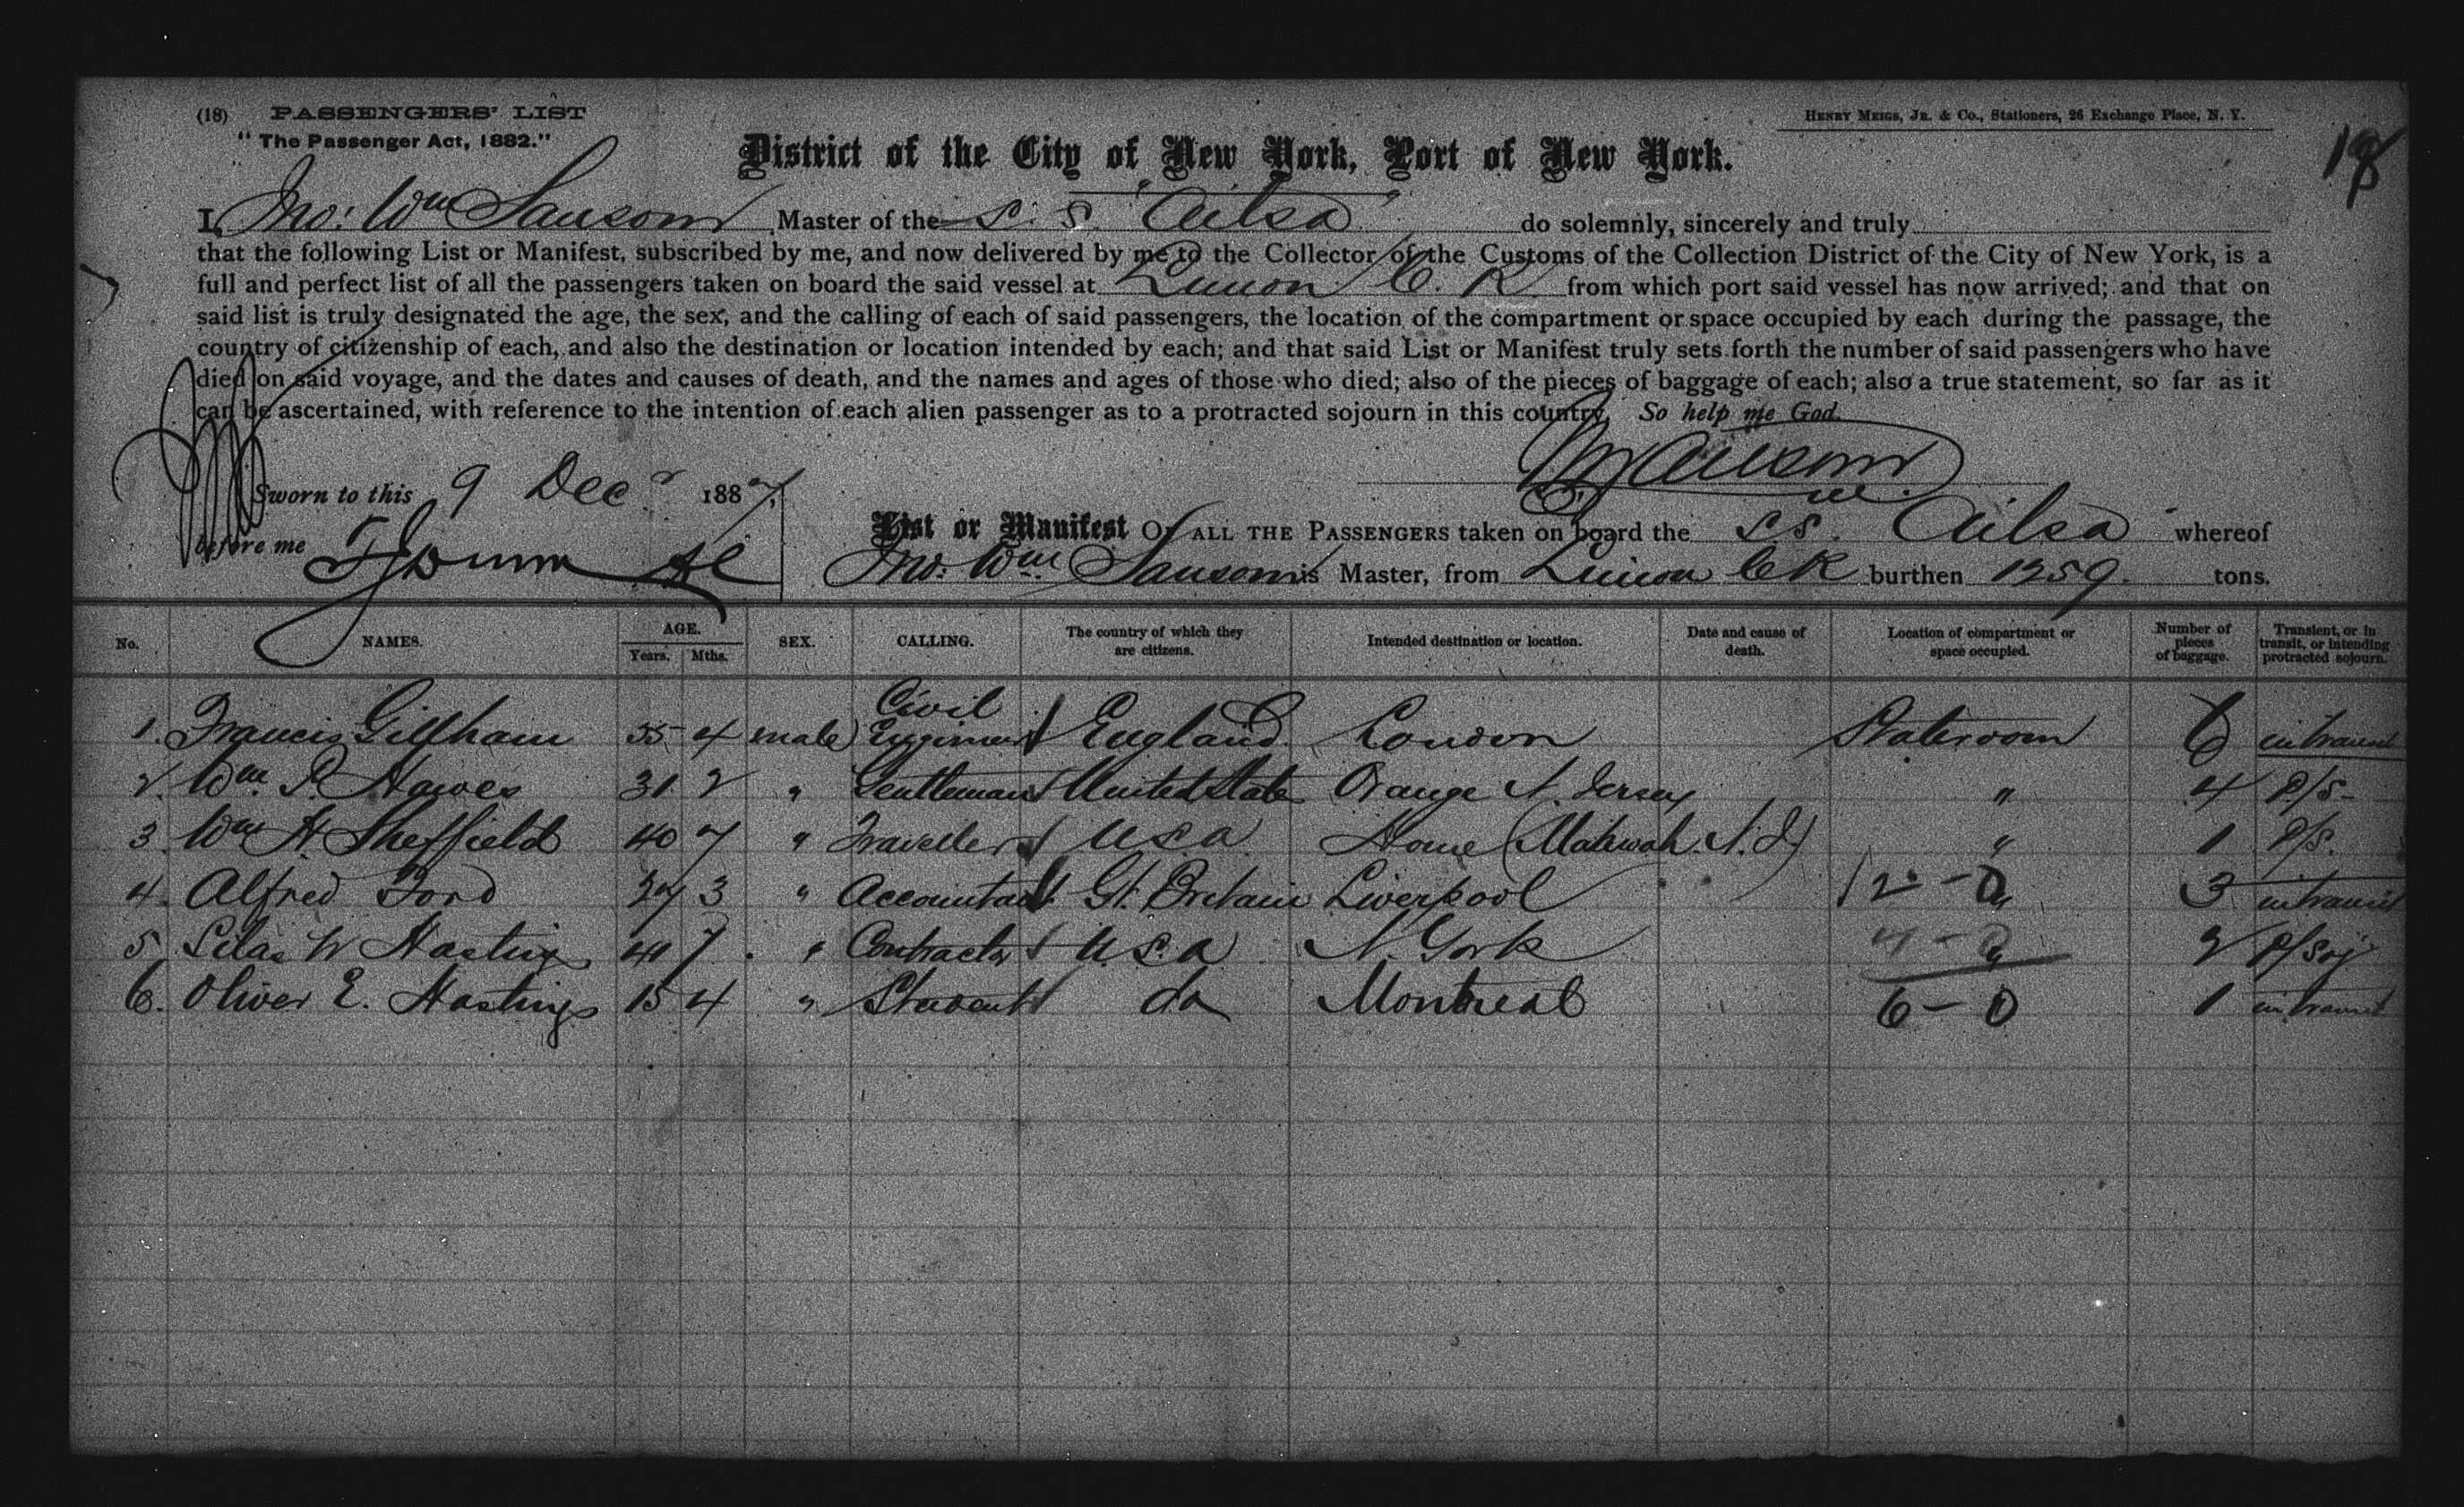 (18) PASSENGERS' LIST
HENRY MEIGS, JR. & Co., Stationers, 26 Exchange Place, N. Y.
"The Passenger Act, 1882."
District of the City of New York, Port of New York.
I, Jno: Wm Sansom, Master of the S. S. "Ailsa" do solemnly, sincerely and truly
that the following List or Manifest, subscribed by me, and now delivered by me to the Collector of the Customs of the Collection District of the City of New York, is a
full and perfect list of all the passengers taken on board the said vessel at Limon C. R. from which port said vessel has now arrived; and that on
said list is truly designated the age, the sex, and the calling of each of said passengers, the location of the compartment or space occupied by each during the passage, the
country of citizenship of each, and also the destination or location intended by each; and that said List or Manifest truly sets forth the number of said passengers who have
died on said voyage, and the dates and causes of death, and the names and ages of those who died; also of the pieces of baggage of each; also a true statement, so far as it
can be ascertained, with reference to the intention of each alien passenger as to a protracted sojourn in this country. So help me God.
Sworn to this 9 Decr 1887,
before me
List or Manifest OF ALL THE PASSENGERS taken on board the S.S. Ailsa whereof
Jno: Wm Sansom is Master, from Limon C R burthen 1259 tons.
No. NAMES. AGE. Years. Mths. SEX. CALLING. The country of which they are citizens. Intended destination or location. Date and cause of death. Location of compartment or space occupied. Number of pieces of baggage. Transient, or in transit, or intending protracted sojourn.
1. Francis Gillham 55 4 male Civil Engineer England London Stateroom 6 in transit
2. Wm. P. Hawes 31 2 " Gentleman United States Orange N. Jersey " 4 P/S
3. Wm H. Sheffield 40 7 " Traveller U S A Home (Mahwah. N. J) " 1 P/S.
4. Alfred Ford 27 3 " Accountant Gt. Britain Liverpool " 3 in transit
5. Silas W Hastings 41 7 " Contractor U. S. A N. York " 2 P/Soj
6. Oliver E. Hastings 15 4 " Student do Montreal 6 - 0 1 in transit